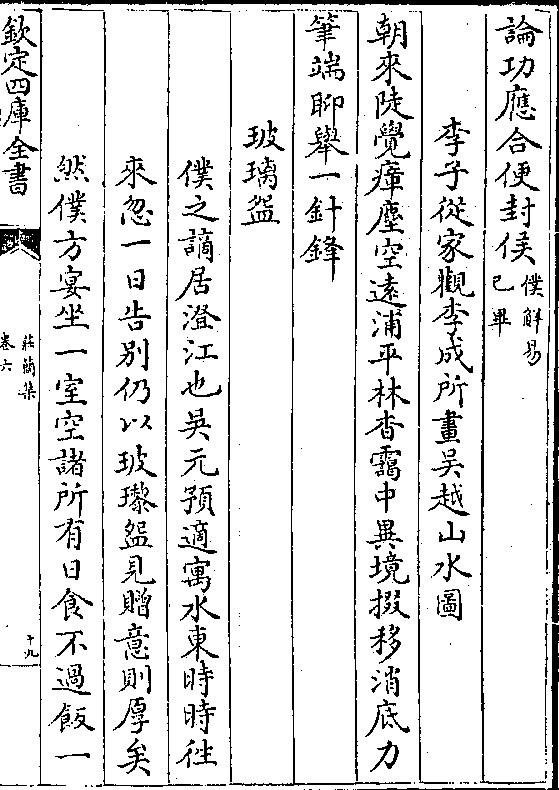 論功應合便封侯僕解易
已畢
李子從家觀李成所畫吳越山水圖
朝來陡覺瘴塵空遠浦平林杳靄中異境掇移消底力
筆端聊舉一針鋒
玻璃盌
僕之謫居澄江也吳元預適寓水東時時徃
來忽一日告別仍以玻瓈盌見贈意則厚矣
然僕方宴坐一室空諸所有日食不過飯一
欽定四庫全書
莊簡集
卷六
十九